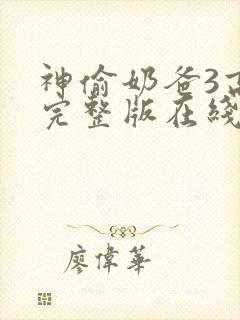 神偷奶爸3高
完整版在线
廖偉華